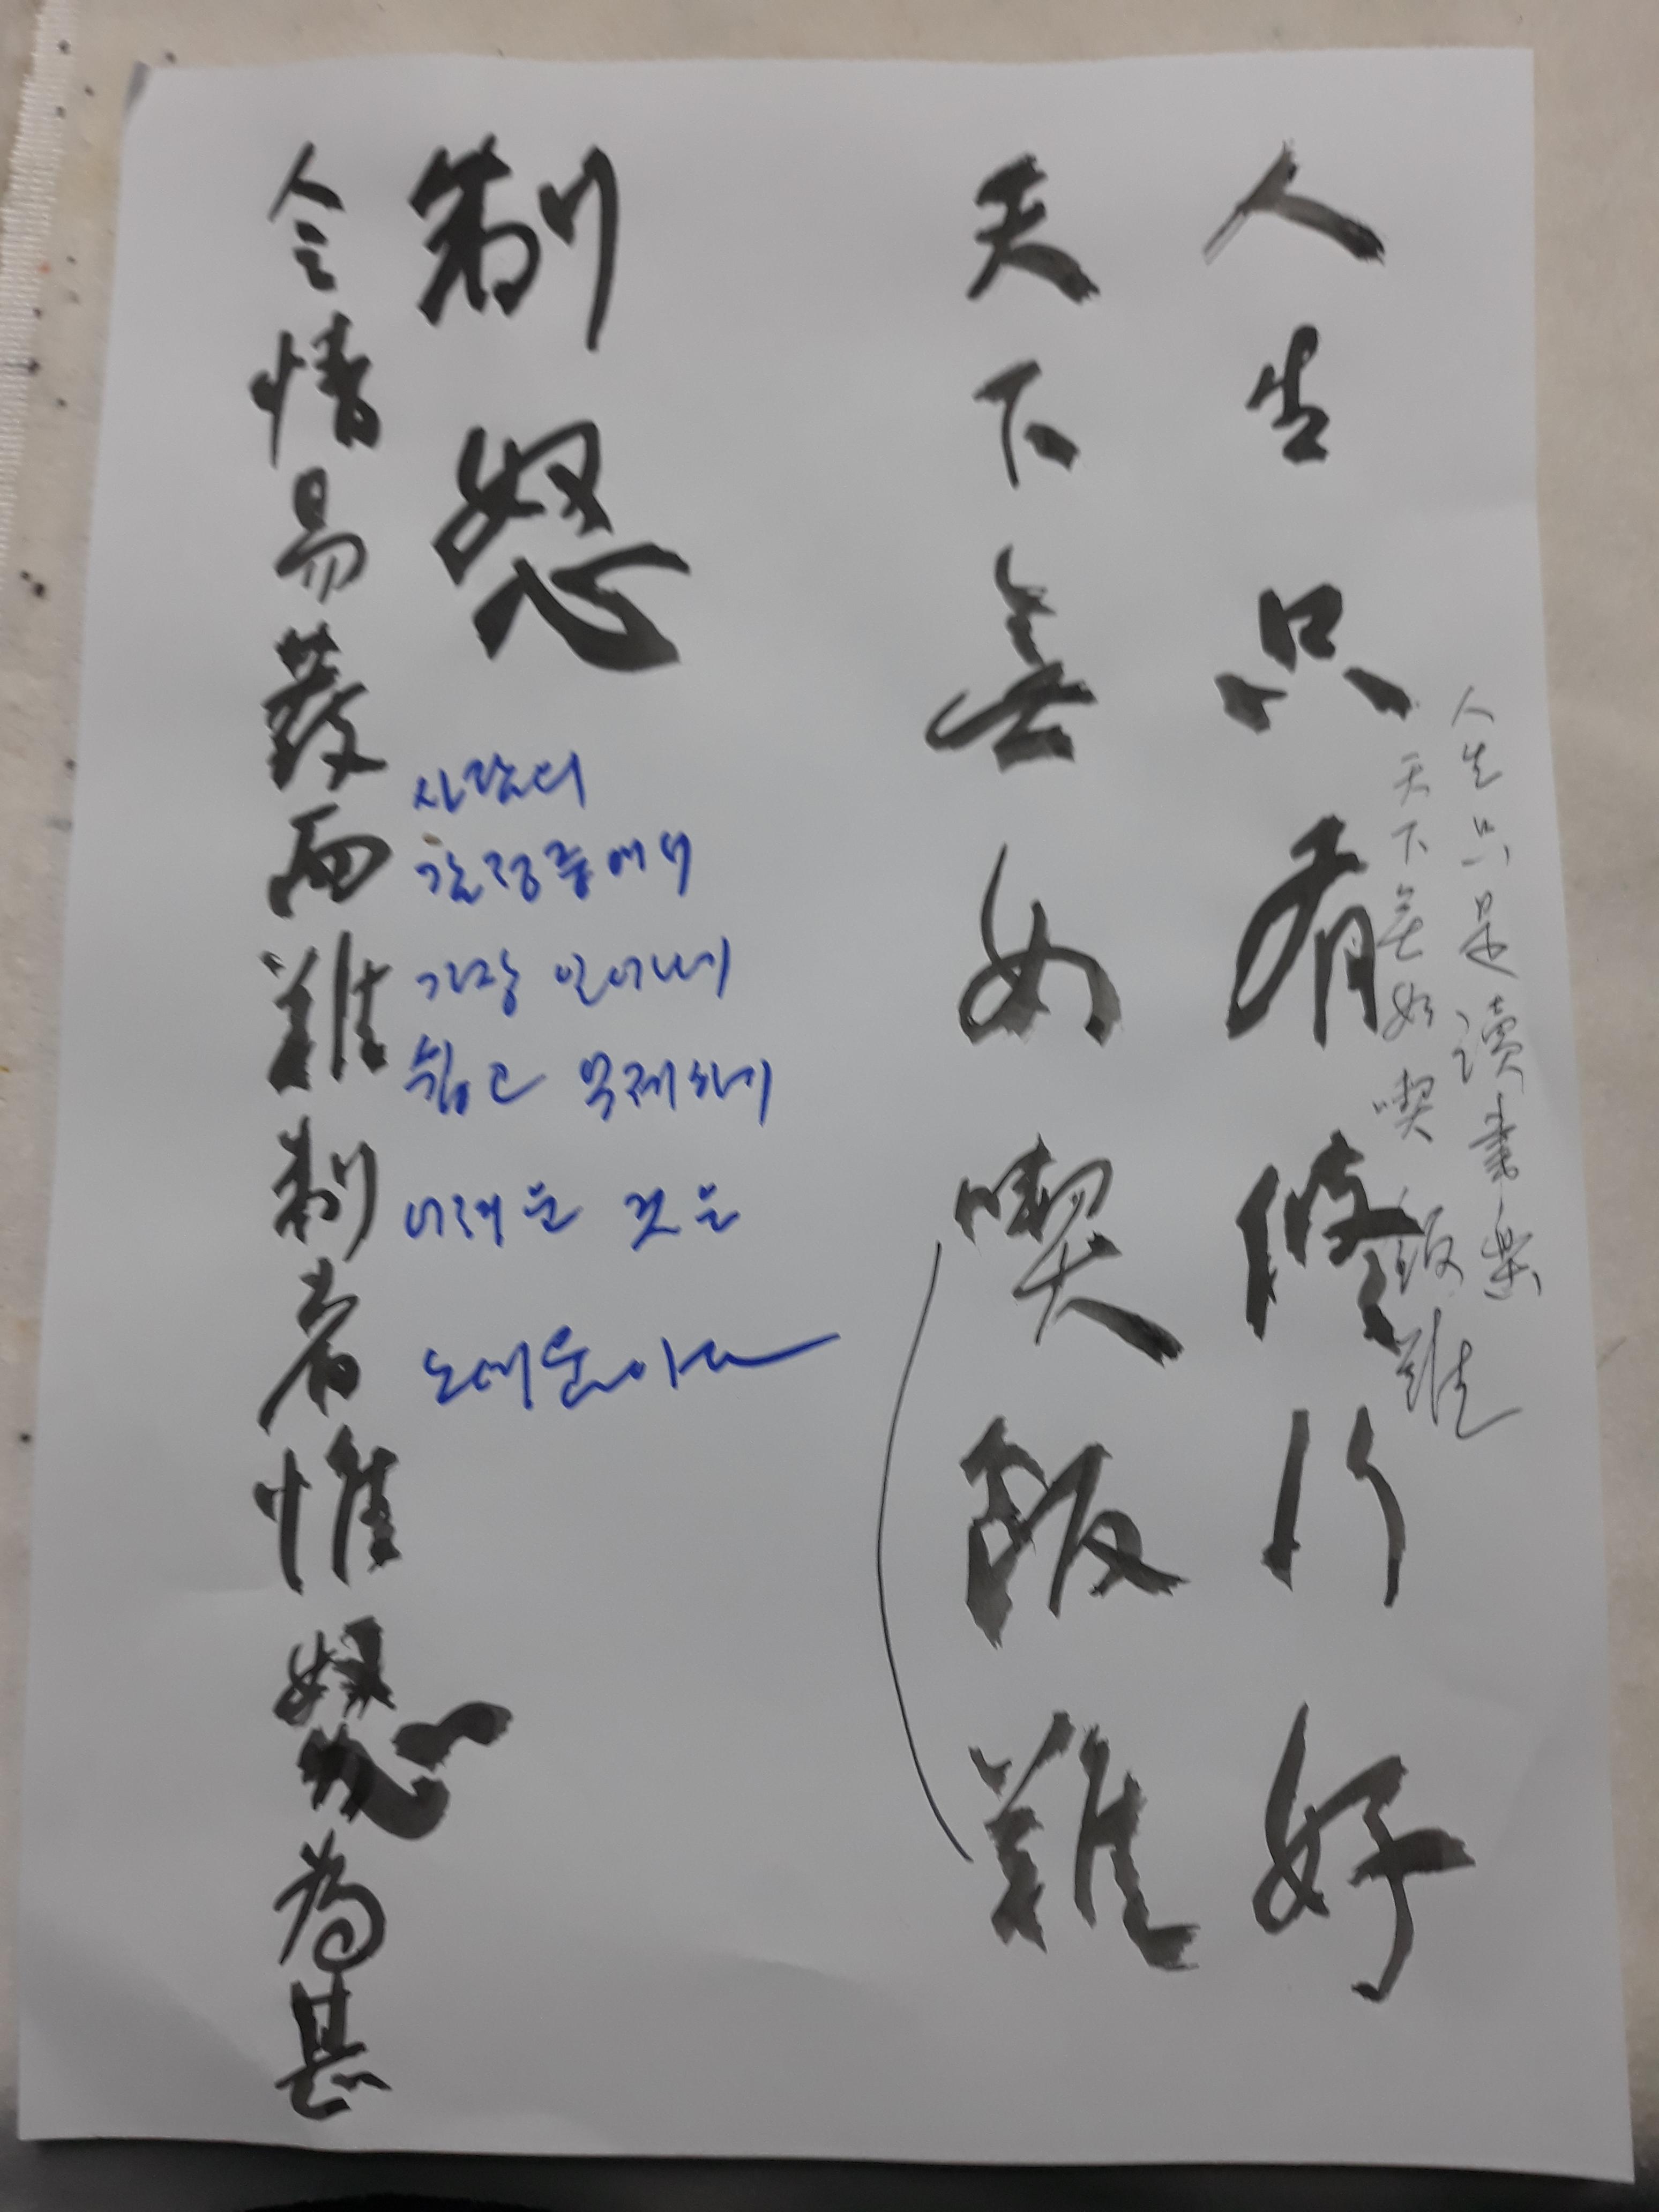 人生只是讀書樂
天下無如喫飯難
人生只有修行好
天下無如喫飯難
制怒
사람의
감정중에서
가장 일어나기
쉽고 억제하기
어려운 것은
노여움이다
人之情易發而難制者惟怒為甚